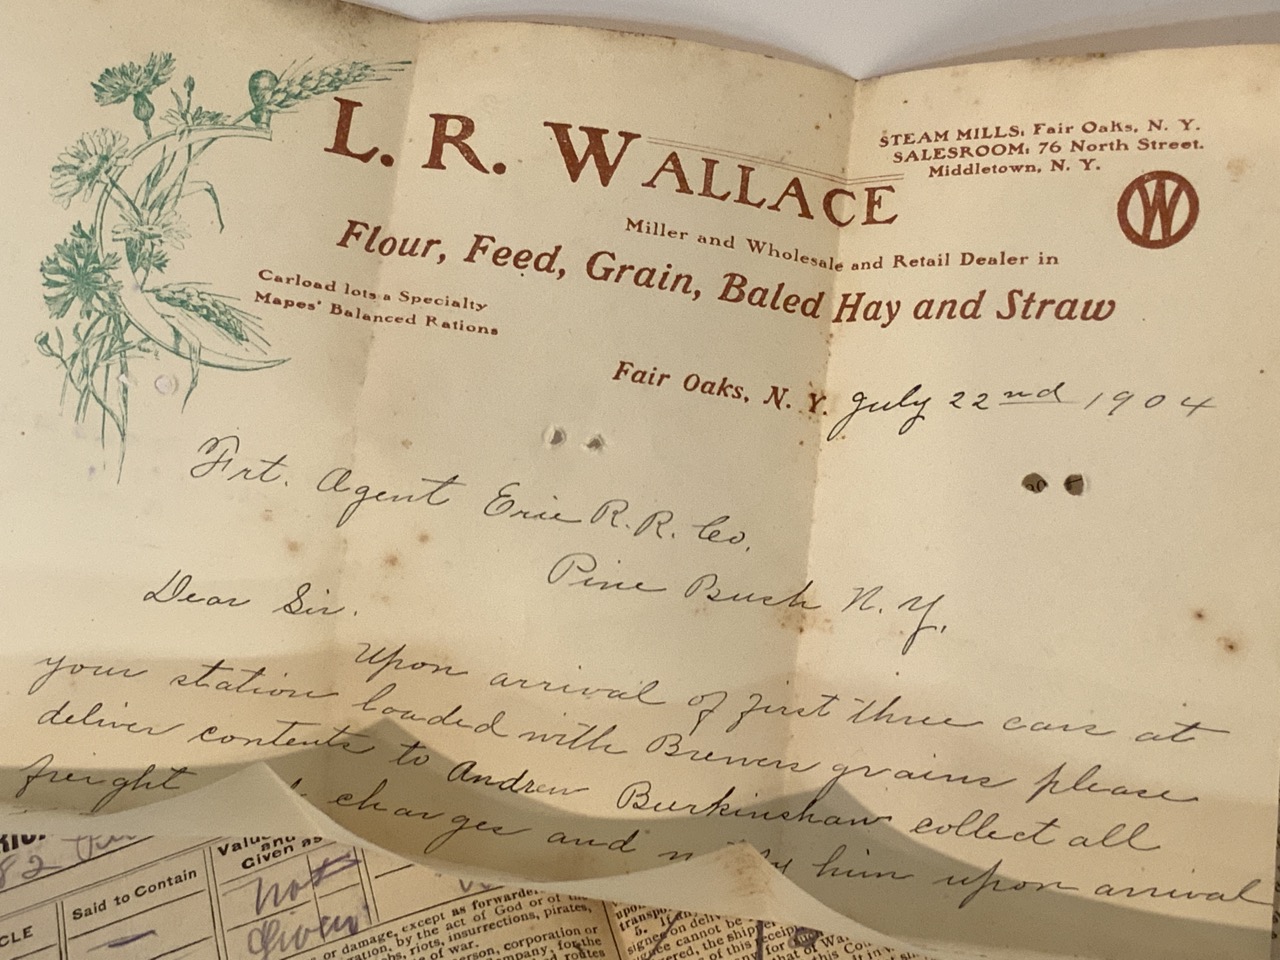 L. R. WALLACE
STEAM MILLS: Fair Oaks, N. Y.
SALESROOM: 76 North Street.
Middletown, N. Y.
W
Miller and Wholesale and Retail Dealer in
Flour, Feed, Grain, Baled Hay and Straw
Carload lots a Specialty
Mapes' Balanced Rations
Fair Oaks, N. Y. July 22nd 1904
Frt. Agent Erie R. R. Co.
Pine Bush N. Y.
Dear Sir.
Upon arrival of first three cars at
your station loaded with Brewers grains please
deliver contents to Andrew Burkinshaw collect all
freight charges and him upon arrival
82
Said to Contain
Given as
Not
Given
or damage, except as forwarder
by the act of God or of the
riots, insurrections, pirates,
of war.
corporation or
Company, for the
routes
5. If any
sign on deliv
cannot be
the ship
of this receip
that of Wa
this Co